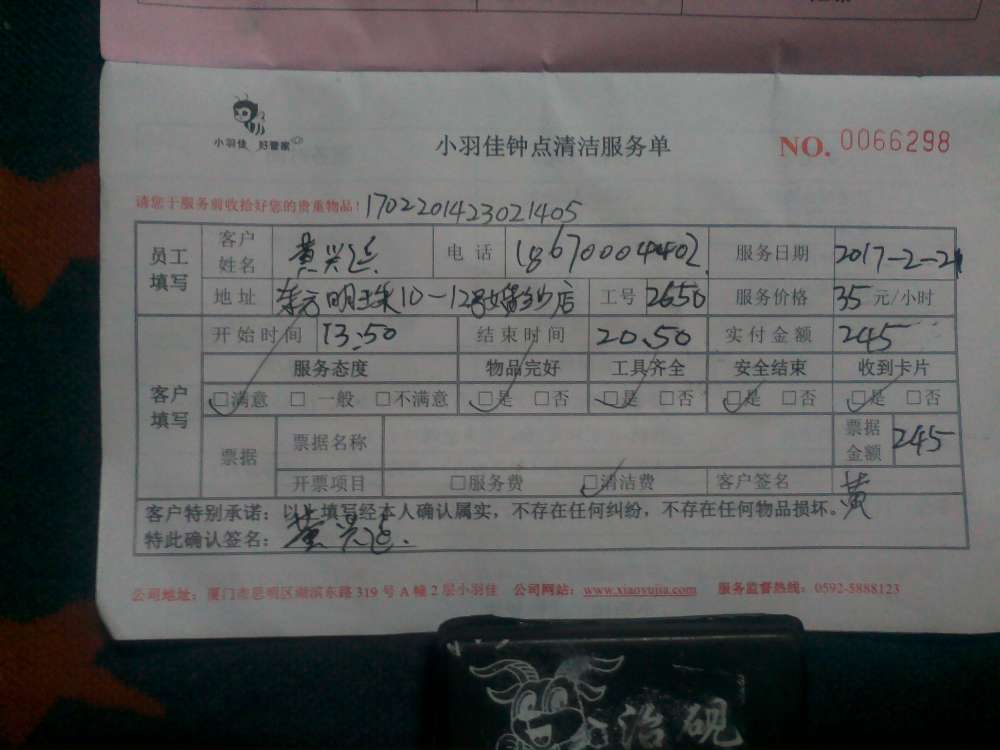 小羽佳 好管家
小羽佳钟点清洁服务单
NO. 0066298
请您于服务前收拾好您的贵重物品! 1702201423021405
员工填写 客户姓名 黄兴延 电话 18670004402 服务日期 2017-2-21
地址 东方明珠10-12号 店 工号 2650 服务价格 35 元/小时
客户填写 开始时间 13.50 结束时间 20.50 实付金额 245
服务态度 物品完好 工具齐全 安全结束 收到卡片
☑满意 □ 一般 □不满意 ☑是 □否 ☑是 □否 ☑是 □否 ☑是 □否
票据 票据名称 票据金额 245
开票项目 □服务费 ☑清洁费 客户签名 黄
客户特别承诺: 以上填写经本人确认属实,不存在任何纠纷,不存在任何物品损坏。
特此确认签名: 黄兴延.
公司地址: 厦门市思明区湖滨东路 319 号 A 幢 2 层小羽佳 公司网站: www.xiaoyujia.com 服务监督热线: 0592-5888123
治砚